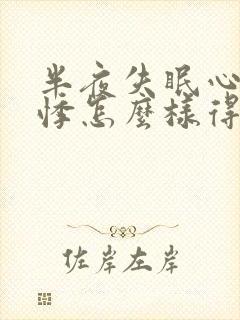 半夜失眠心
悸怎麼樣得
佐岸左岸